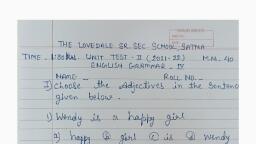 THE LOVEDALE SR. SEC SCHOOL, SATNA
TIME - 1:30 Hrs. UNIT TEST - II (2021-22) M.M. 40
ENGLISH GRAMMAR - IX
NAME - ROLL NO. -
I) Choose the adjectives in the sentence
given below.
1) Wendy is a happy girl
a) happy b) girl c) is d) Wendy